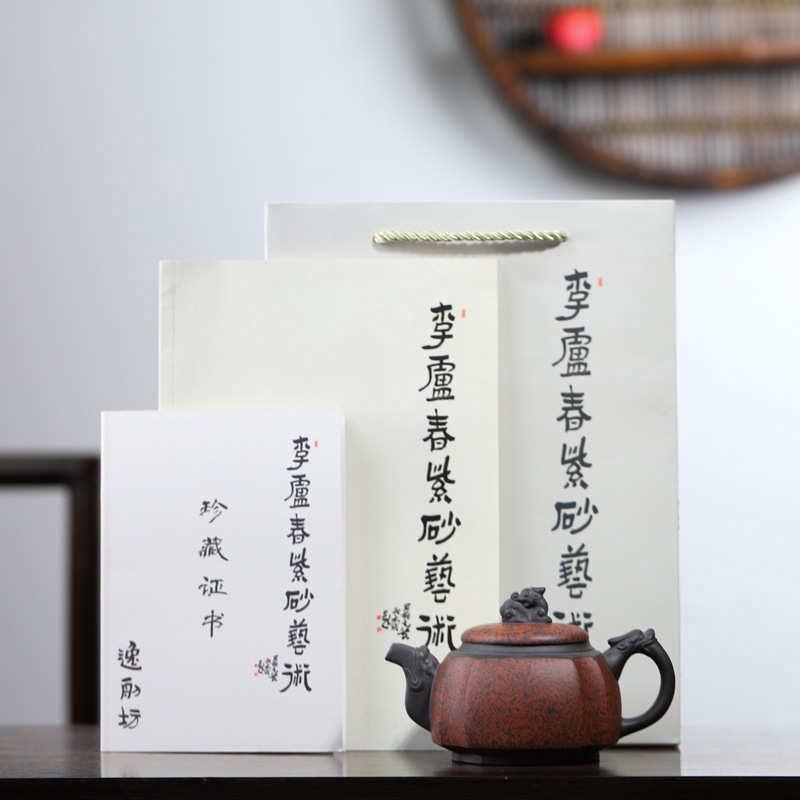 李廬春紫砂藝術
珍藏证书
逸朐坊
李廬春紫砂藝術
李廬春紫砂藝術